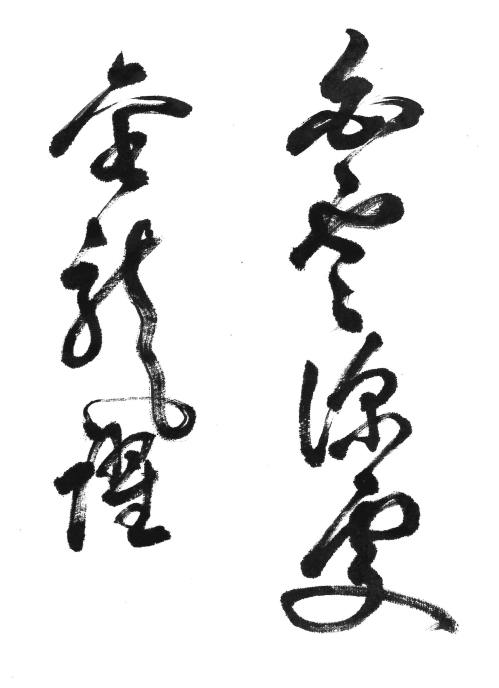 白雲深處
金龍躍